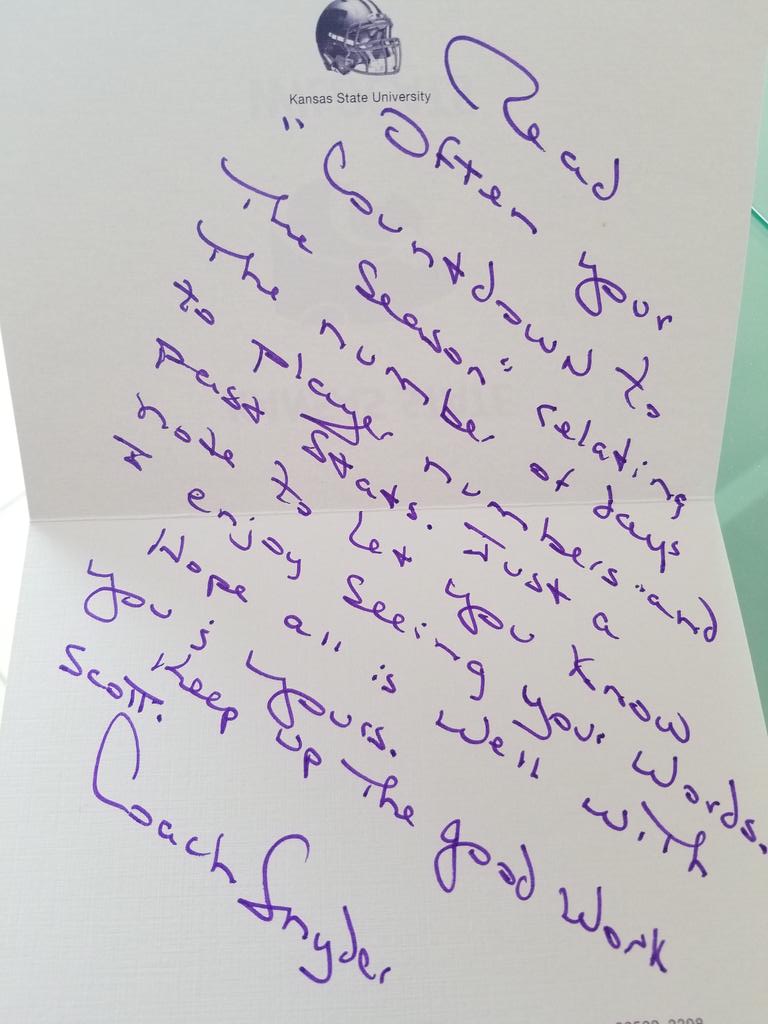 Kansas State University
Read
Often your
"Countdown to
the Season" relating
the number of days
to player numbers and
past stats. Just a
note to let you know
I enjoy seeing your words.
Hope all is well with
you & yours.
Keep up the good work
Scott.
Coach Snyder